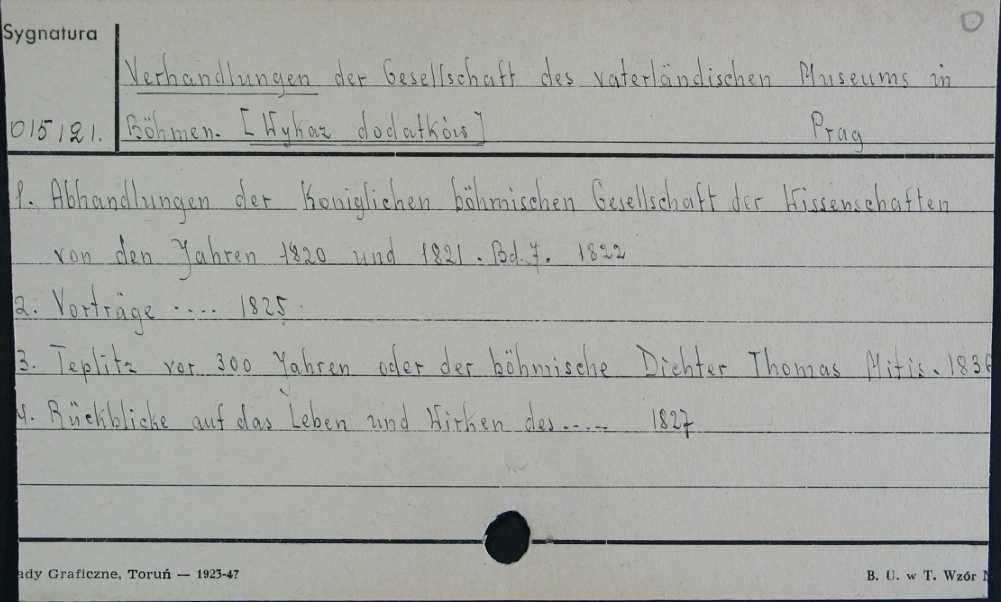 Sygnatura
Verhandlungen der Gesellschaft des vaterländischen Museums in
015121. Böhmen. [Wykaz dodatków] Prag
1. Abhandlungen der Königlichen böhmischen Gesellschaft der Wissenschaften
von den Jahren 1820 und 1821. Bd. 7. 1822
2. Vorträge .... 1825.
3. Teplitz vor 300 Jahren oder der böhmische Dichter Thomas Mitis. 1836
4. Rückblicke auf das Leben und Wirken des .... 1827
ady Graficzne, Toruń — 1923-47
B. U. w T. Wzór N